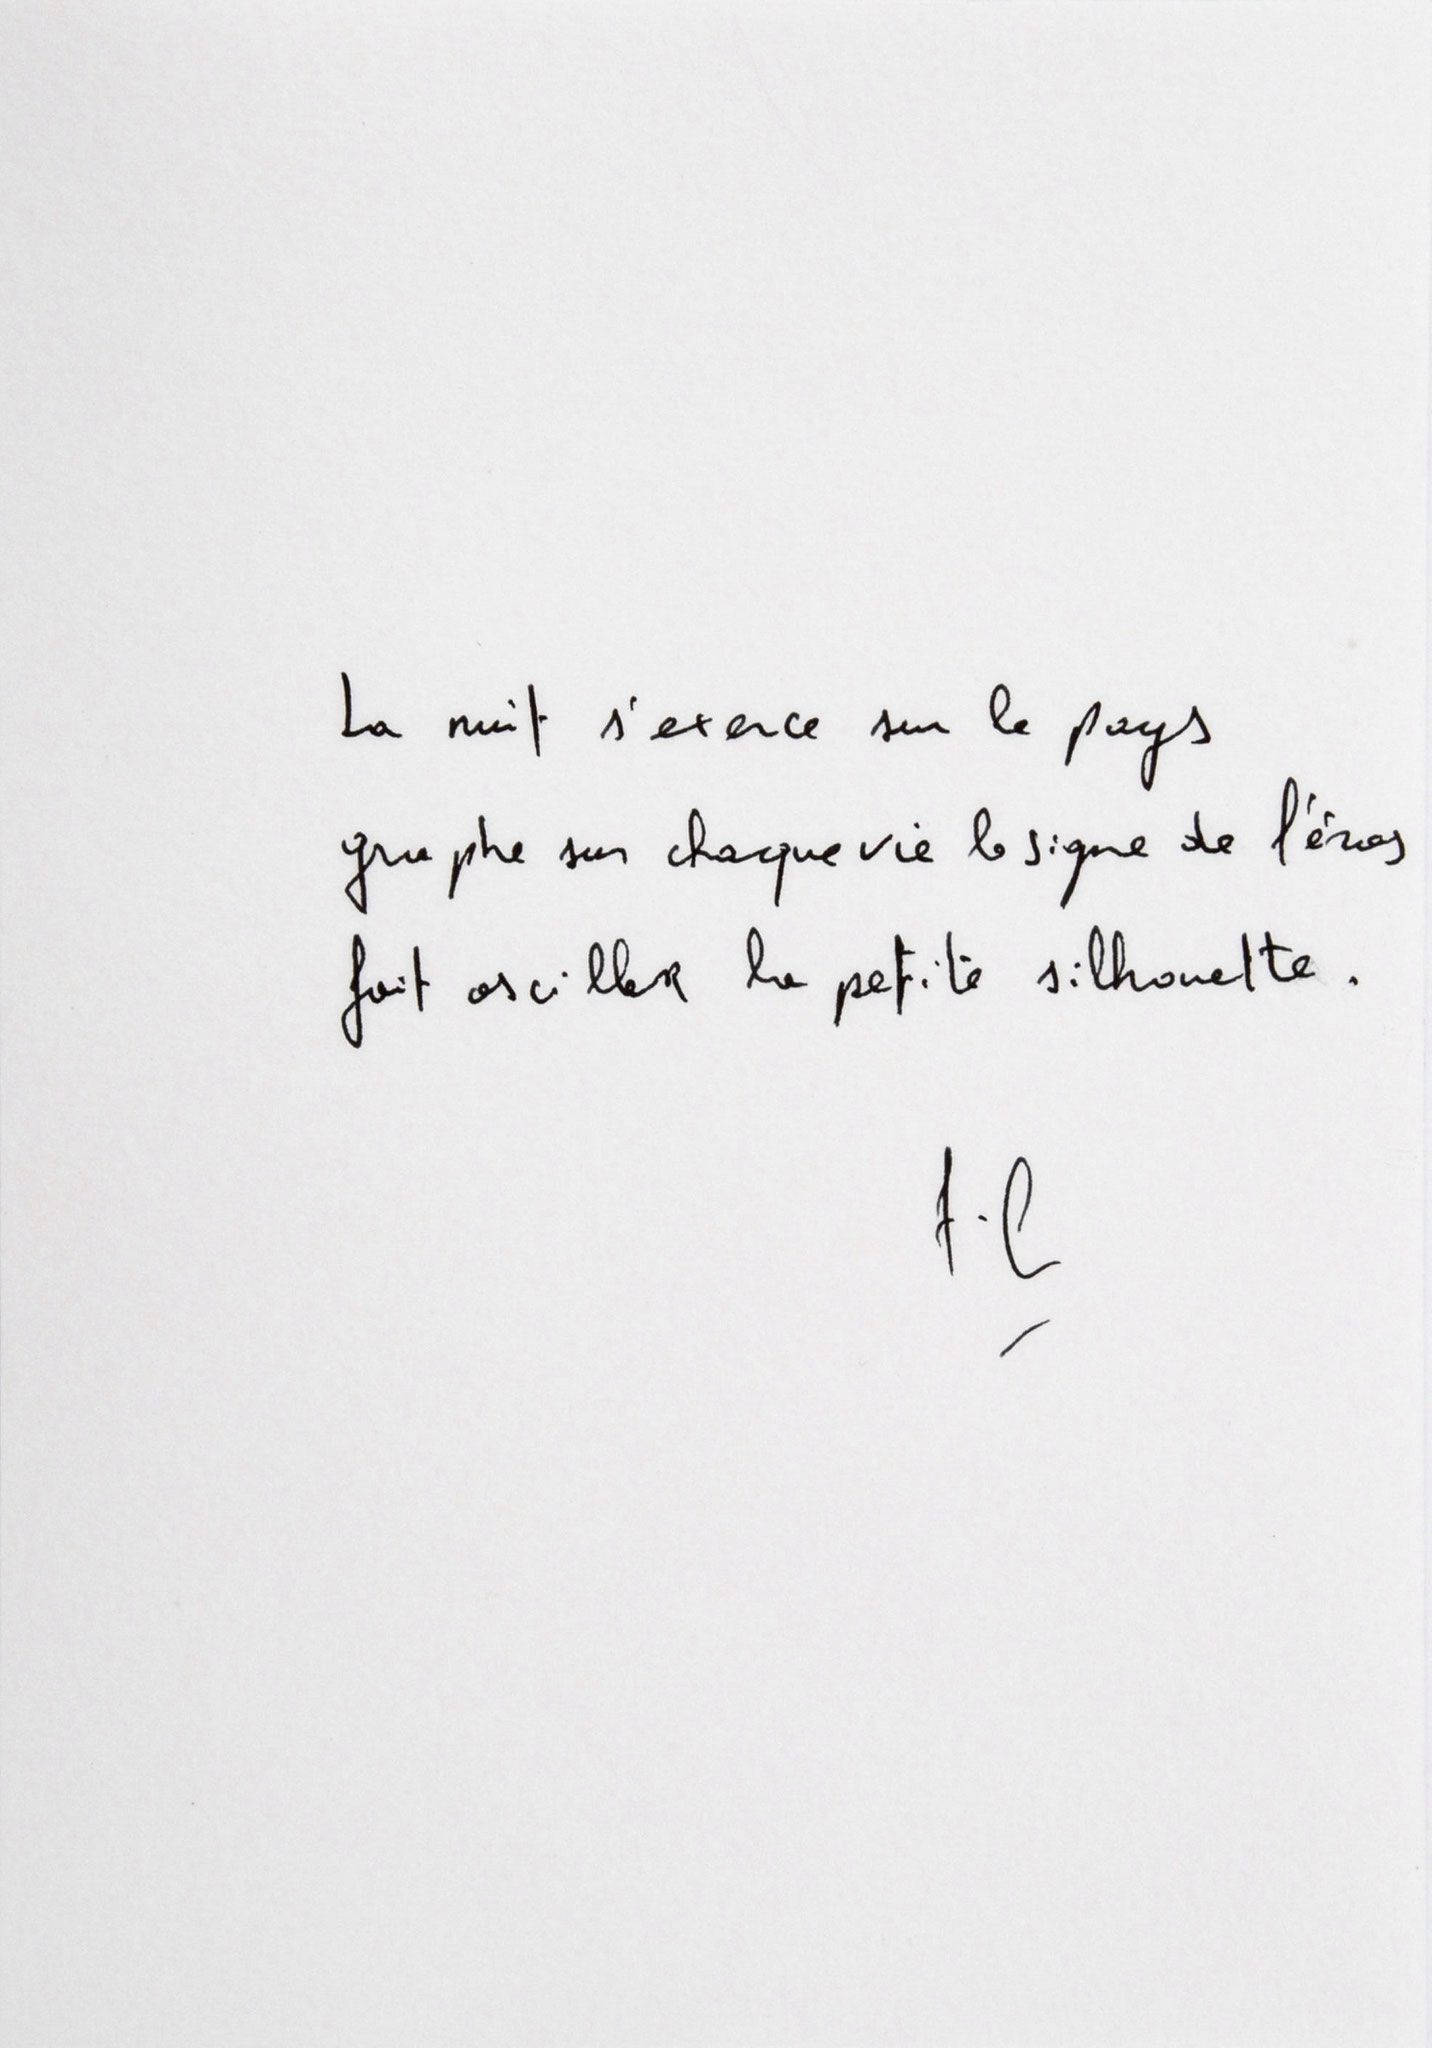 La nuit s'exerce sur le pays
graphe sur chaque vie le signe de l'éros
fait osciller la petite silhouette.